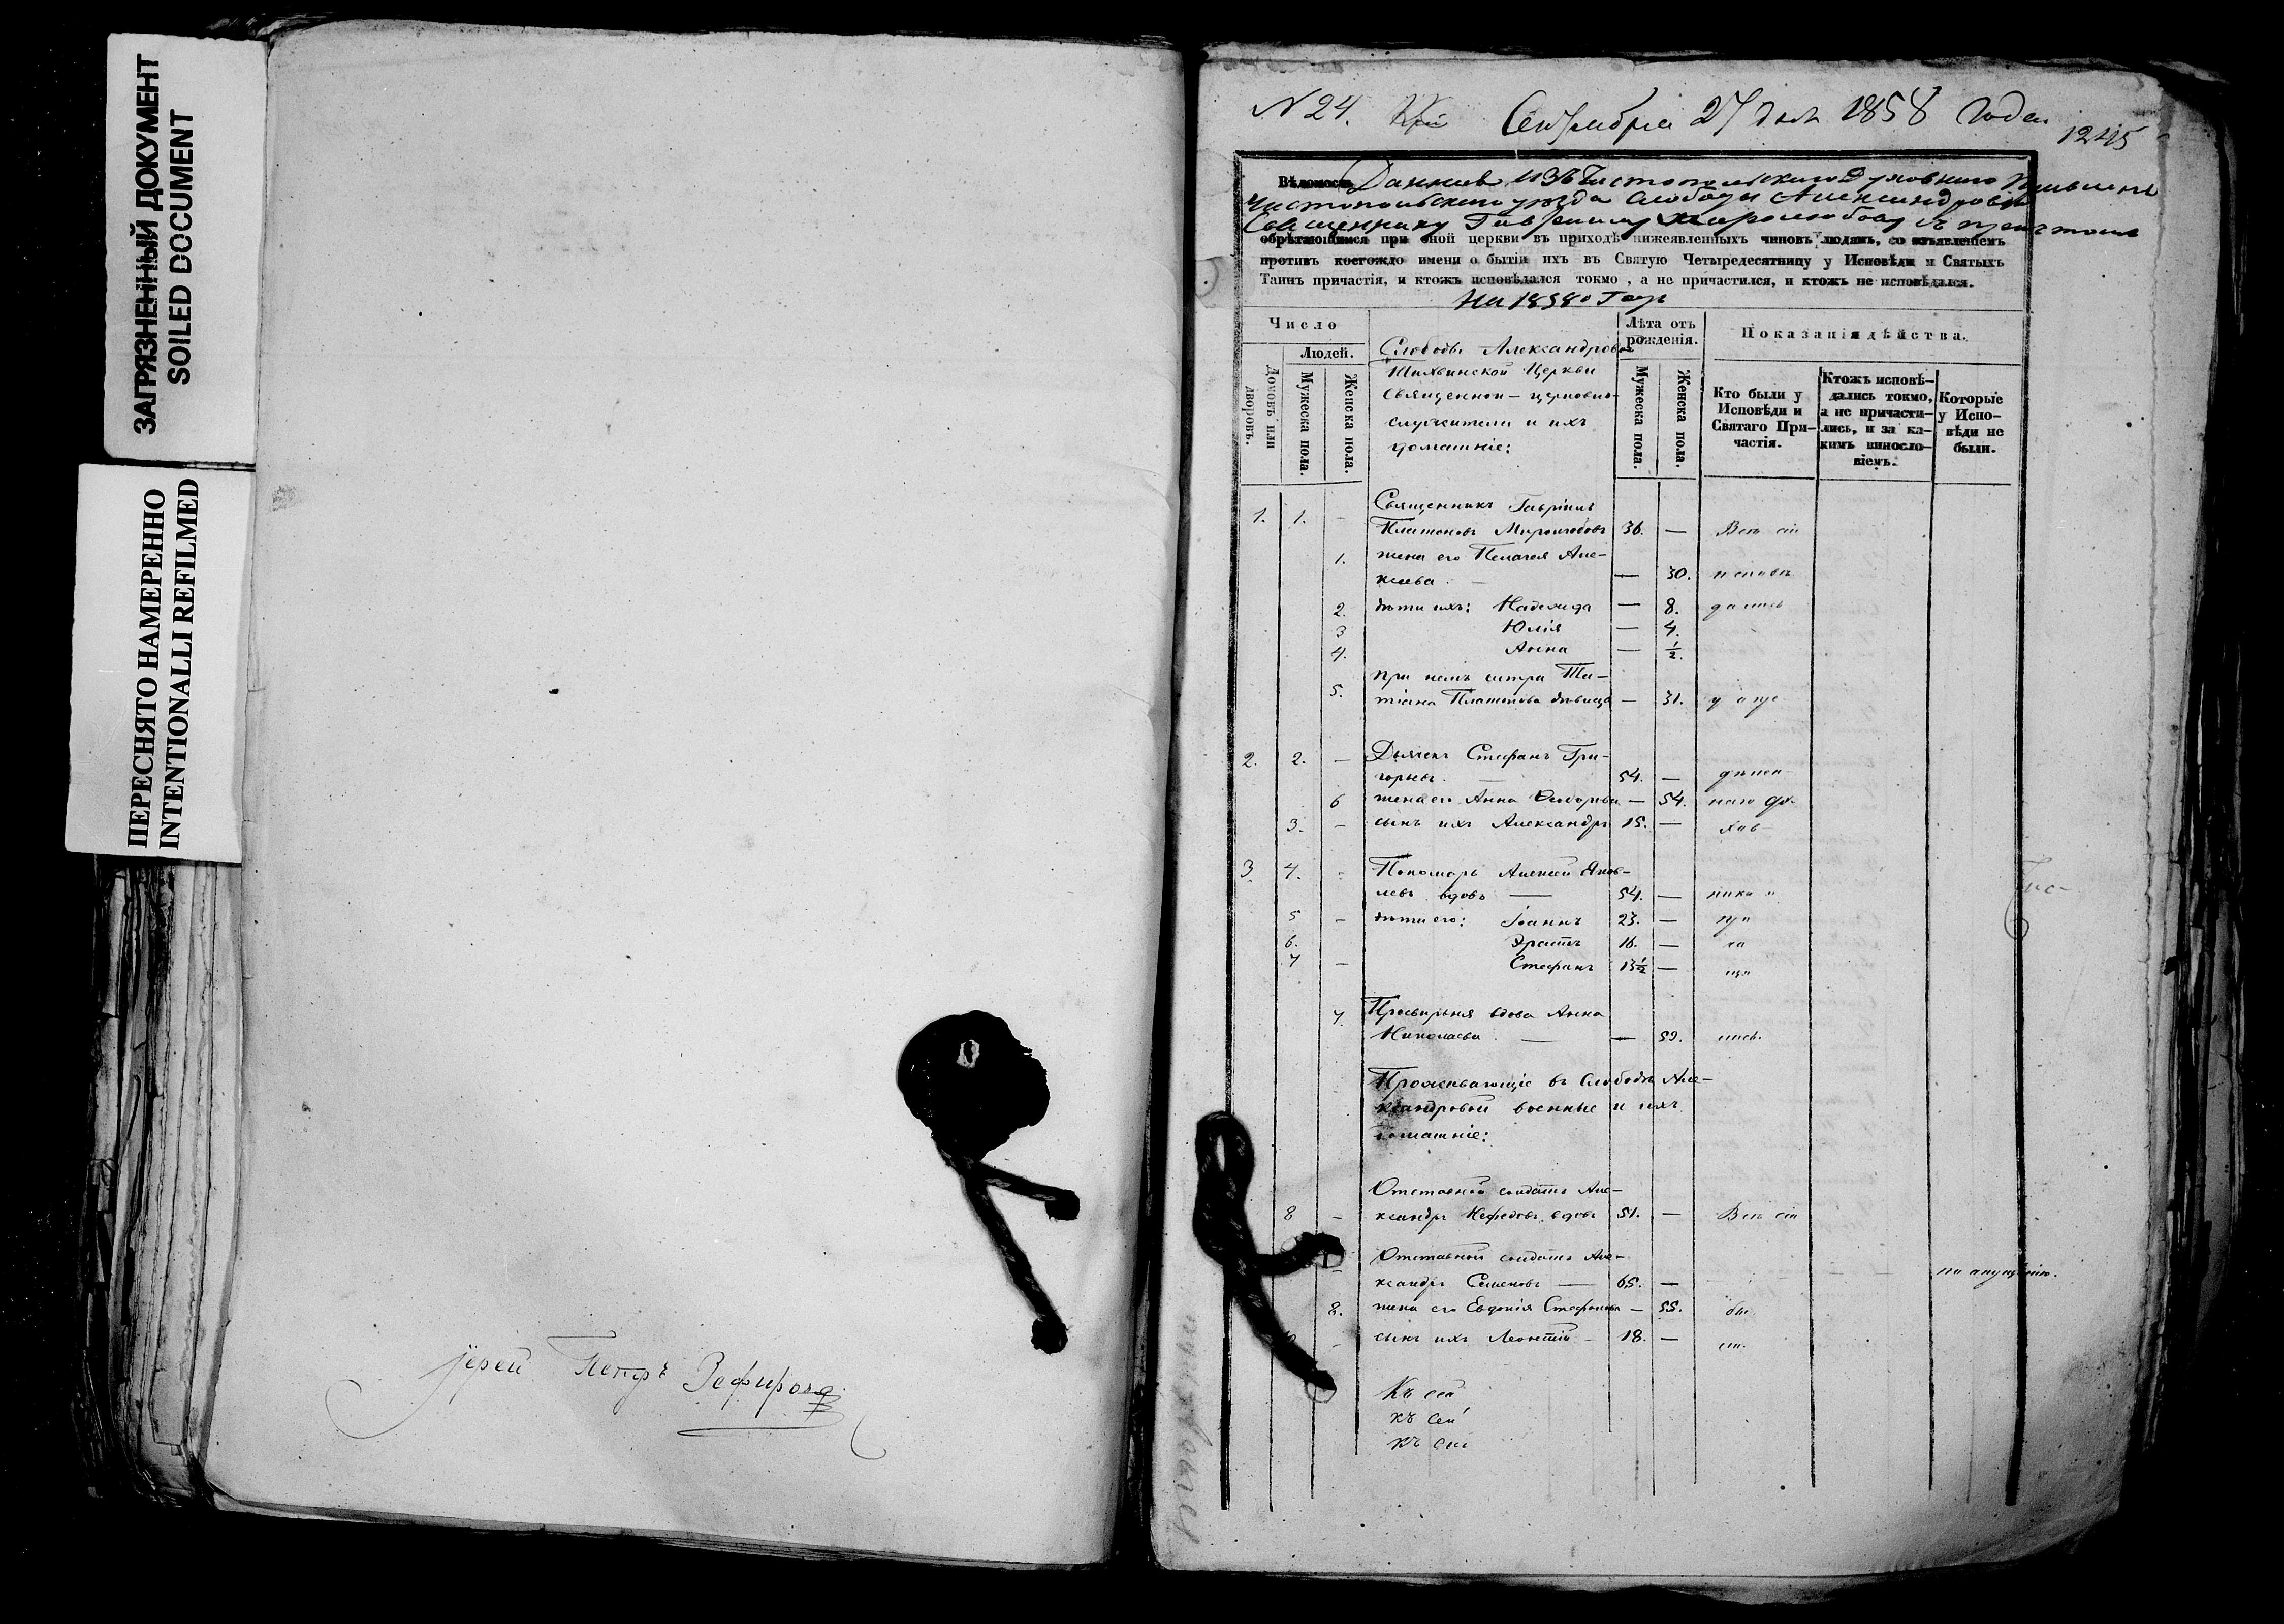 ЗАГРЯЗНЕННЫЙ ДОКУМЕНТ
SOILED DOCUMENT
ПЕРЕСНЯТО НАМЕРЕННО
INTENTIONALLI REFILMED
Іерей Петръ Зефировъ
N 24. Сентября 27 дня 1858 года
1245
Вѣдомость Данная изъ Чистопольскаго Духовнаго Правленія
Чистопольскаго уѣзда Слободы Александровой
Священнику Гавріилу Миролюбову
обрѣтающимся при оной церкви въ приходѣ нижеявленныхъ чиновъ людямъ, со изъявленіемъ
противъ коегождо имени о бытіи ихъ въ Святую Четыредесятницу у Исповѣди и Святыхъ
Таинъ причастія, и ктожъ исповѣдался токмо, а не причастился, и ктожъ не исповѣдался.
На 1858й Годъ
Число
Людей.
Домовъ или дворовъ.
Мужеска пола.
Женска пола.
Слободы Александровой
Тихвинской Церкви
Священно-церковно-
служители и ихъ
домашніе:
Лѣта отъ
рожденія.
Мужеска пола.
Женска пола.
Показанія дѣйства.
Кто были у
Исповѣди и
Святаго При-
частія.
Ктожъ исповѣ-
дались токмо,
а не причасти-
лись, и за ка-
кимъ виносло-
віемъ.
Которые
у Испо-
вѣди не
были.
Священникъ Гавріилъ
1. 1. - Платоновъ Миролюбовъ 36. — Всѣ сіи
1. жена его Пелагея Але-
ксѣева — 30. исповѣ
2. дѣти ихъ: Надежда — 8. дались
3 Юлія — 4.
4. Анна — 1/2.
при немъ сестра Та-
5. тіана Платонова дѣвица — 31. у оце
2. 2. — Дьячекъ Стефанъ Гри-
горьевъ. 54. —
6 жена его Анна Ѳеодорова — 54.
3. - сынъ ихъ Александръ 15. —
3. 4. Пономарь Алексей Яков-
левъ вдовъ — 54. —
5 - дѣти его: Іоаннъ 23. —
6. Эрастъ 16. —
7 — Стефанъ 13 1/2 —
7. Просвирня вдова Анна
Николаева — 59. лись.
Проживающіе въ Слободѣ Але-
ксандровой военные и ихъ
домашніе:
Отставной солдатъ Але-
8 - ксандръ Нефедовъ, вдовъ 51. — Всѣ сіи
Отставной солдатъ Але-
ксандръ Семеновъ — 65. — по опущенію.
8. жена его Евдокія Стефанова — 55. бы
- сынъ ихъ Леонтій - 18. — ли.
Къ сей
къ сей
къ сей